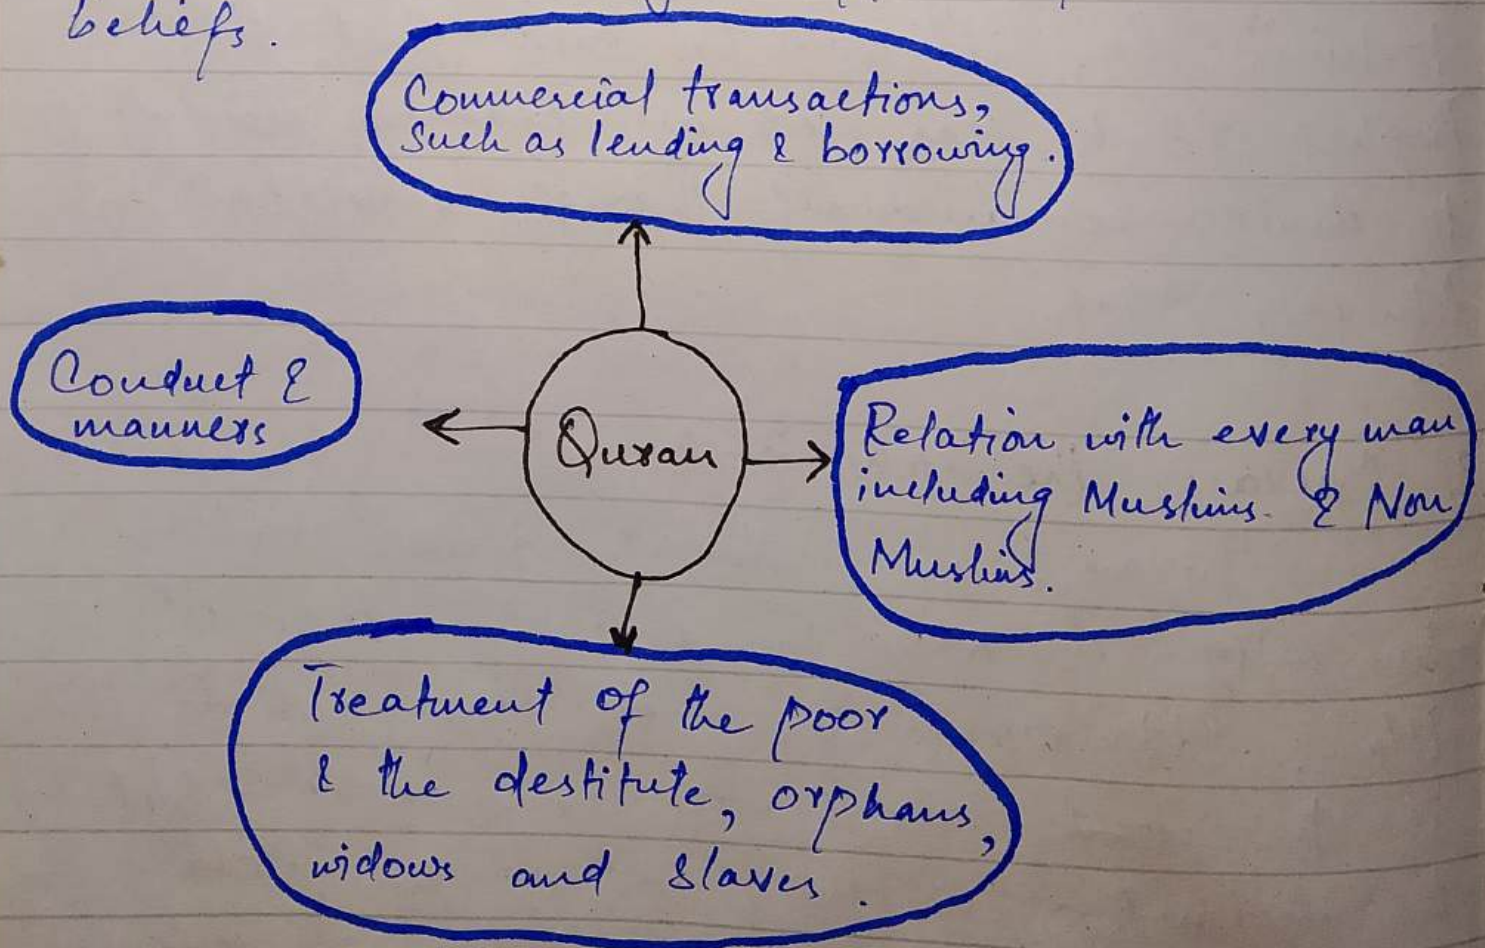 beliefs.
Commercial transactions,
Such as lending & borrowing.
Conduct &
manners
Quran
Relation with every man
including Muslims & Non
Muslims.
Treatment of the poor
& the destitute, orphans,
widows and slaves.